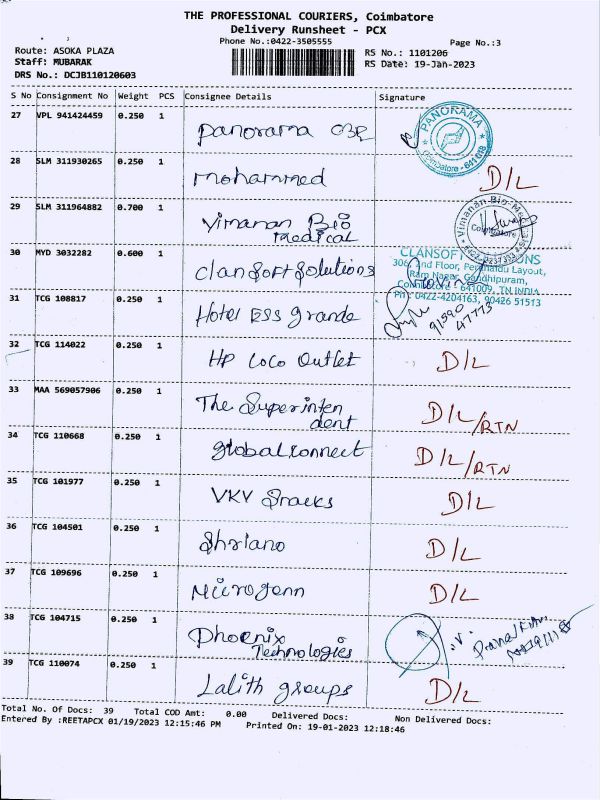 THE PROFESSIONAL COURIERS, Coimbatore
Delivery Runsheet - PCX
Phone No.:0422-3505555
Page No.:3
Route: ASOKA PLAZA
RS No.: 1101206
Staff: MUBARAK
RS Date: 19-Jan-2023
DRS No.: DCJB110120603
S No Consignment No Weight PCS Consignee Details Signature
27 VPL 941424459 0.250 1 Panorama
PANORAMA
Coimbatore - 641 018
28 SLM 311930265 0.250 1 Mohammed D/L
29 SLM 311964882 0.700 1 Vimanan Bio
Medical
Coimbatore
30 MYD 3032282 0.600 1 Clansoft Solutions
CLANSOFT
Ram Nagar, Gandhipuram,
Coimbatore - 641009, TN INDIA
Ph: 0422-4204163, 90426 51513
31 TCG 108817 0.250 1 Hotel ESS grande
91590
47773
32 TCG 114022 0.250 1 HP Loco Outlet D/L
33 MAA 569057906 0.250 1 The Superinten
dent D/L/RTN
34 TCG 110668 0.250 1 globalconnect D/L/RTN
35 TCG 101977 0.250 1 VKV Snacks D/L
36 TCG 104501 0.250 1 D/L
37 TCG 109696 0.250 1 D/L
38 TCG 104715 0.250 1 Phoenix
Technologies
39 TCG 110074 0.250 1 Lalith groups D/L
Total No. Of Docs: 39 Total COD Amt: 0.00 Delivered Docs: Non Delivered Docs:
Entered By :REETAPCX 01/19/2023 12:15:46 PM Printed On: 19-01-2023 12:18:46